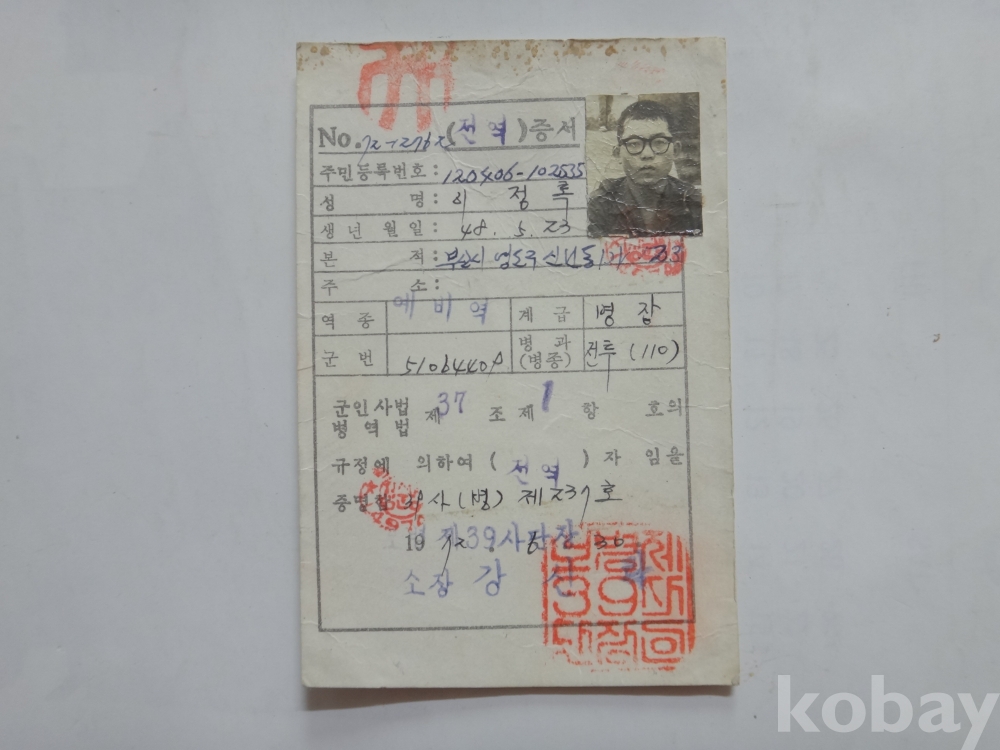 No. 72-2762 (전역) 증서
주민등록번호: 120406-102535
성 명: 이 정 록
생년월일: 48. 5. 23
본 적: 부산시 영도구 신선동
주 소:
역종 예비역 계급 병장
군번 병과(병종) 전투 (110)
군인사법
병역법 제 37 조 제 1 항 호의
규정에 의하여 ( 전역 ) 자 임을
증명함 사(병) 제237호
19 72. 30
제39사단장
소장 강
kobay